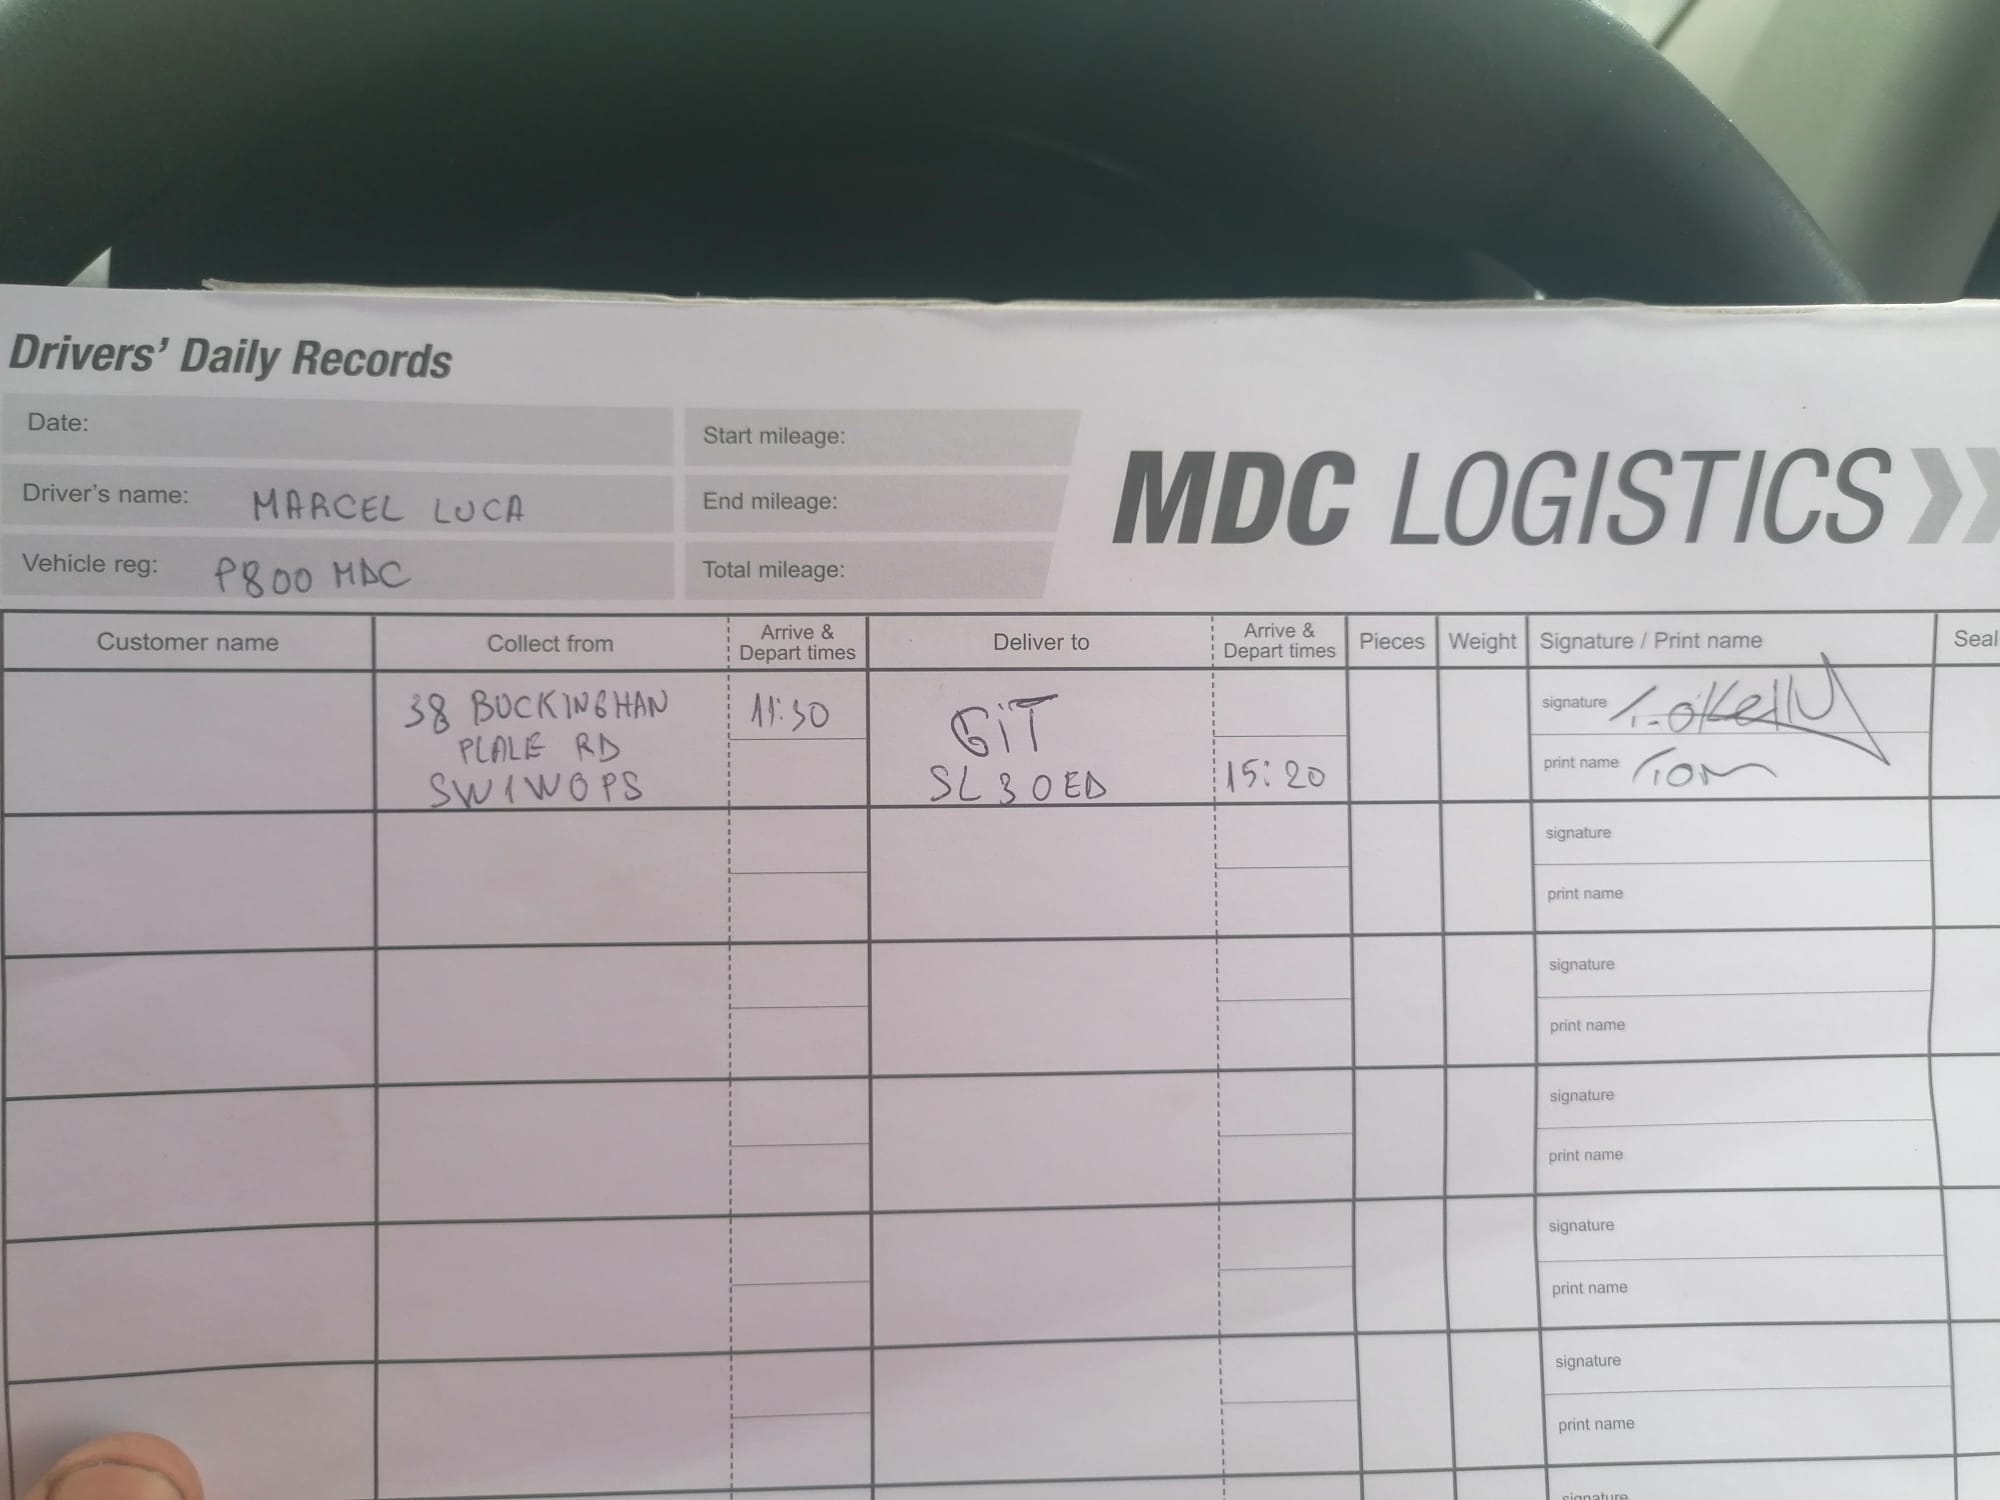 Drivers' Daily Records
Date:
Start mileage:
Driver's name: MARCEL LUCA
End mileage:
Vehicle reg: P800 MDC
Total mileage:
MDC LOGISTICS
Customer name
Collect from
Arrive &
Depart times
Deliver to
Arrive &
Depart times
Pieces
Weight
Signature / Print name
Seal
38 BUCKINGHAN
PLALE RD
SW1W0PS
11:30
GiT
SL3 0ED
15:20
signature T.O'Kelly
print name Tom
signature
print name
signature
print name
signature
print name
signature
print name
signature
print name
signature